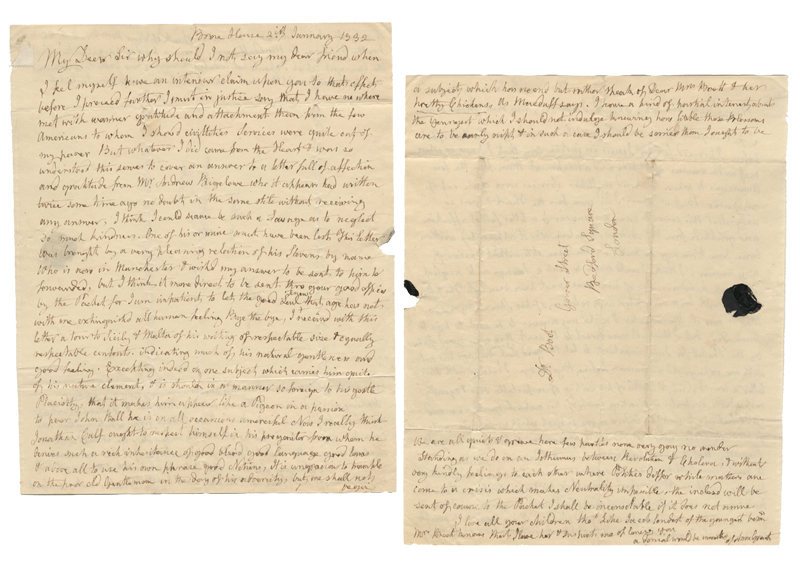 Brae House 24th January 1832
My Dear Sir why should I not say my dear friend when
I feel myself have an interior claim upon you to that effect
before I proceed farther I must in justice say that I have no where
met with warmer gratitude and attachment than from the few
Americans to whom I should civilities Services were quite out of
my power But whatever I did came from the Heart & was so
understood this serves to cover an answer to a letter full of affection
and gratitude from Mr Andrew Bigelowe who it appears had written
twice some time ago no doubt in the same state without receiving
any answer. I think I could scarce be such a savage as to neglect
so much kindness. One of his or mine must have been lost This letter
was brought by a very pleasing relation of his Stevens by name
who is now in Manchester & wishd my answer to be sent to him to
forwarded; but I think it more direct to be sent thro your good offices
by the Packet for I am impatient to let the good soul that age has not
with me extinguished all human feeling Bye the bye, I receivd with this
letter a tour to Sicily & Malta of his writing of respectable size & equally
respectable contents. indicating much of his natural gentleness and
good feeling. Excepting indeed on one subject which carries him quite
of his native element, & is in a manner so foreign to his gentle
Placidity, that it makes him appear like a Pigeon in a passion
to poor John Bull he is on all occasions unmerciful Now I really think
Jonathan Calf ought to respect himself in his progenitor from whom he
derives such a rich inheritance of good blood good language good laws
& above all to use his own phrase good Notions, It is ungracious to trample
on the poor old Gentleman in the day of his adversity, but one shall not
a subject which has no end but rather speak of Dear Mrs & her
pretty Chickens, As Macduff says. I have a kind of partial interest about
the Youngest which I should not indulge knowing how liable those Blossoms
are to be early nipt & in such a case I should be sorrier than I ought to be
Dr Boot
Gower Street
Bedford Square
London
We are all quiet & here few parties none very gay no wonder
Standing as we do on an Isthmus between Revolution & Cholera, & without
very kindly feelings to each other where Politics differ while matters are
come to a crisis which makes Neutrality impossible the inclosed will be
sent of course to the Packet I shall be inconsolable if it does not
I love all your children tho
Mrs knows that I love her & suspects me of you
a denial would be worthy of